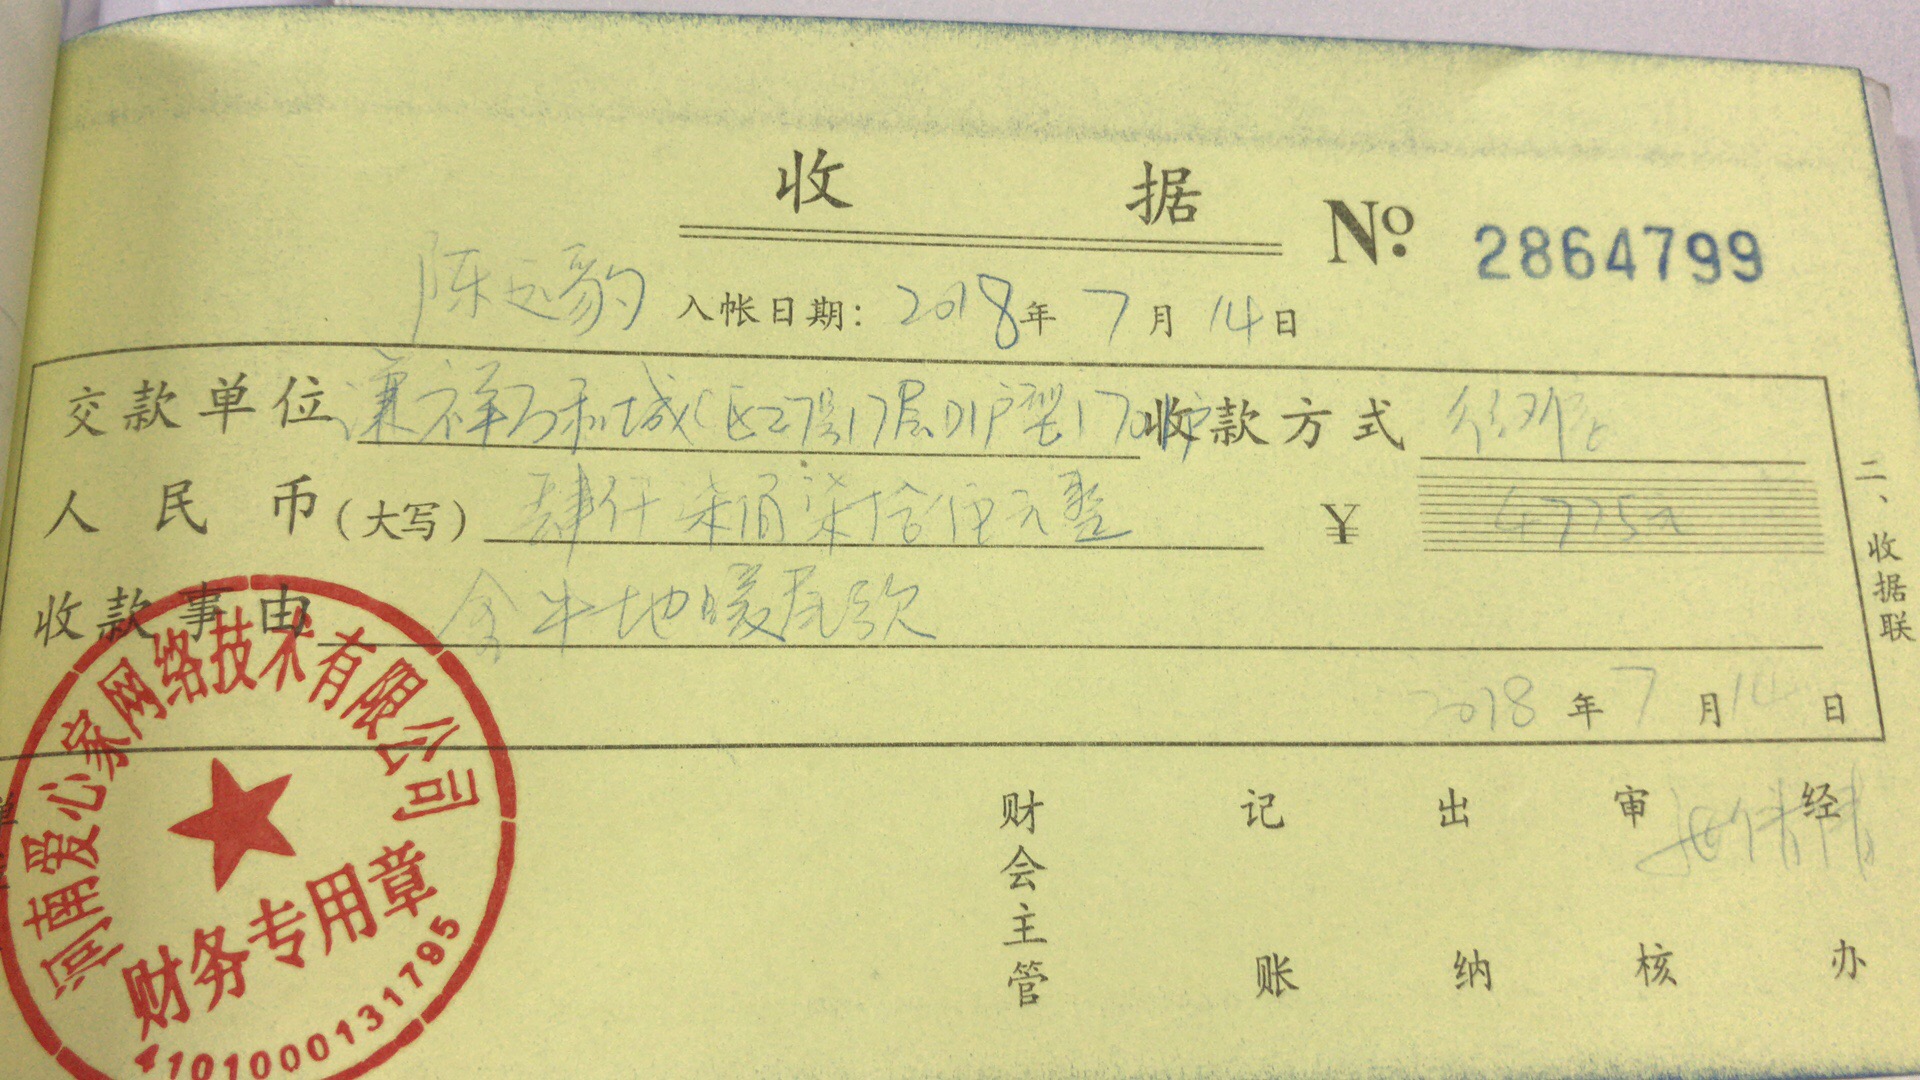 收 据
№ 2864799
陈运豹 入帐日期：2018年 7月 14日
交款单位 谦祥万和城C区27号17层D1户型170 收款方式
人民币（大写） 肆仟柒佰柒拾伍元整 ¥ 4775元
收款事由 金牛地暖尾款
2018年 7月 14日
二、收据联
财会主管 记账 出纳 审核 经办
河南爱心家网络技术有限公司
财务专用章
4101000131795